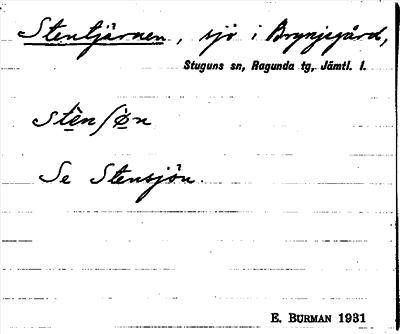 Stentjärnen, sjö i Brynjegård,
Stuguns sn, Ragunda tg, Jämtl. l.
stèn/ø̀n
Se Stensjön.
E. BURMAN 1931